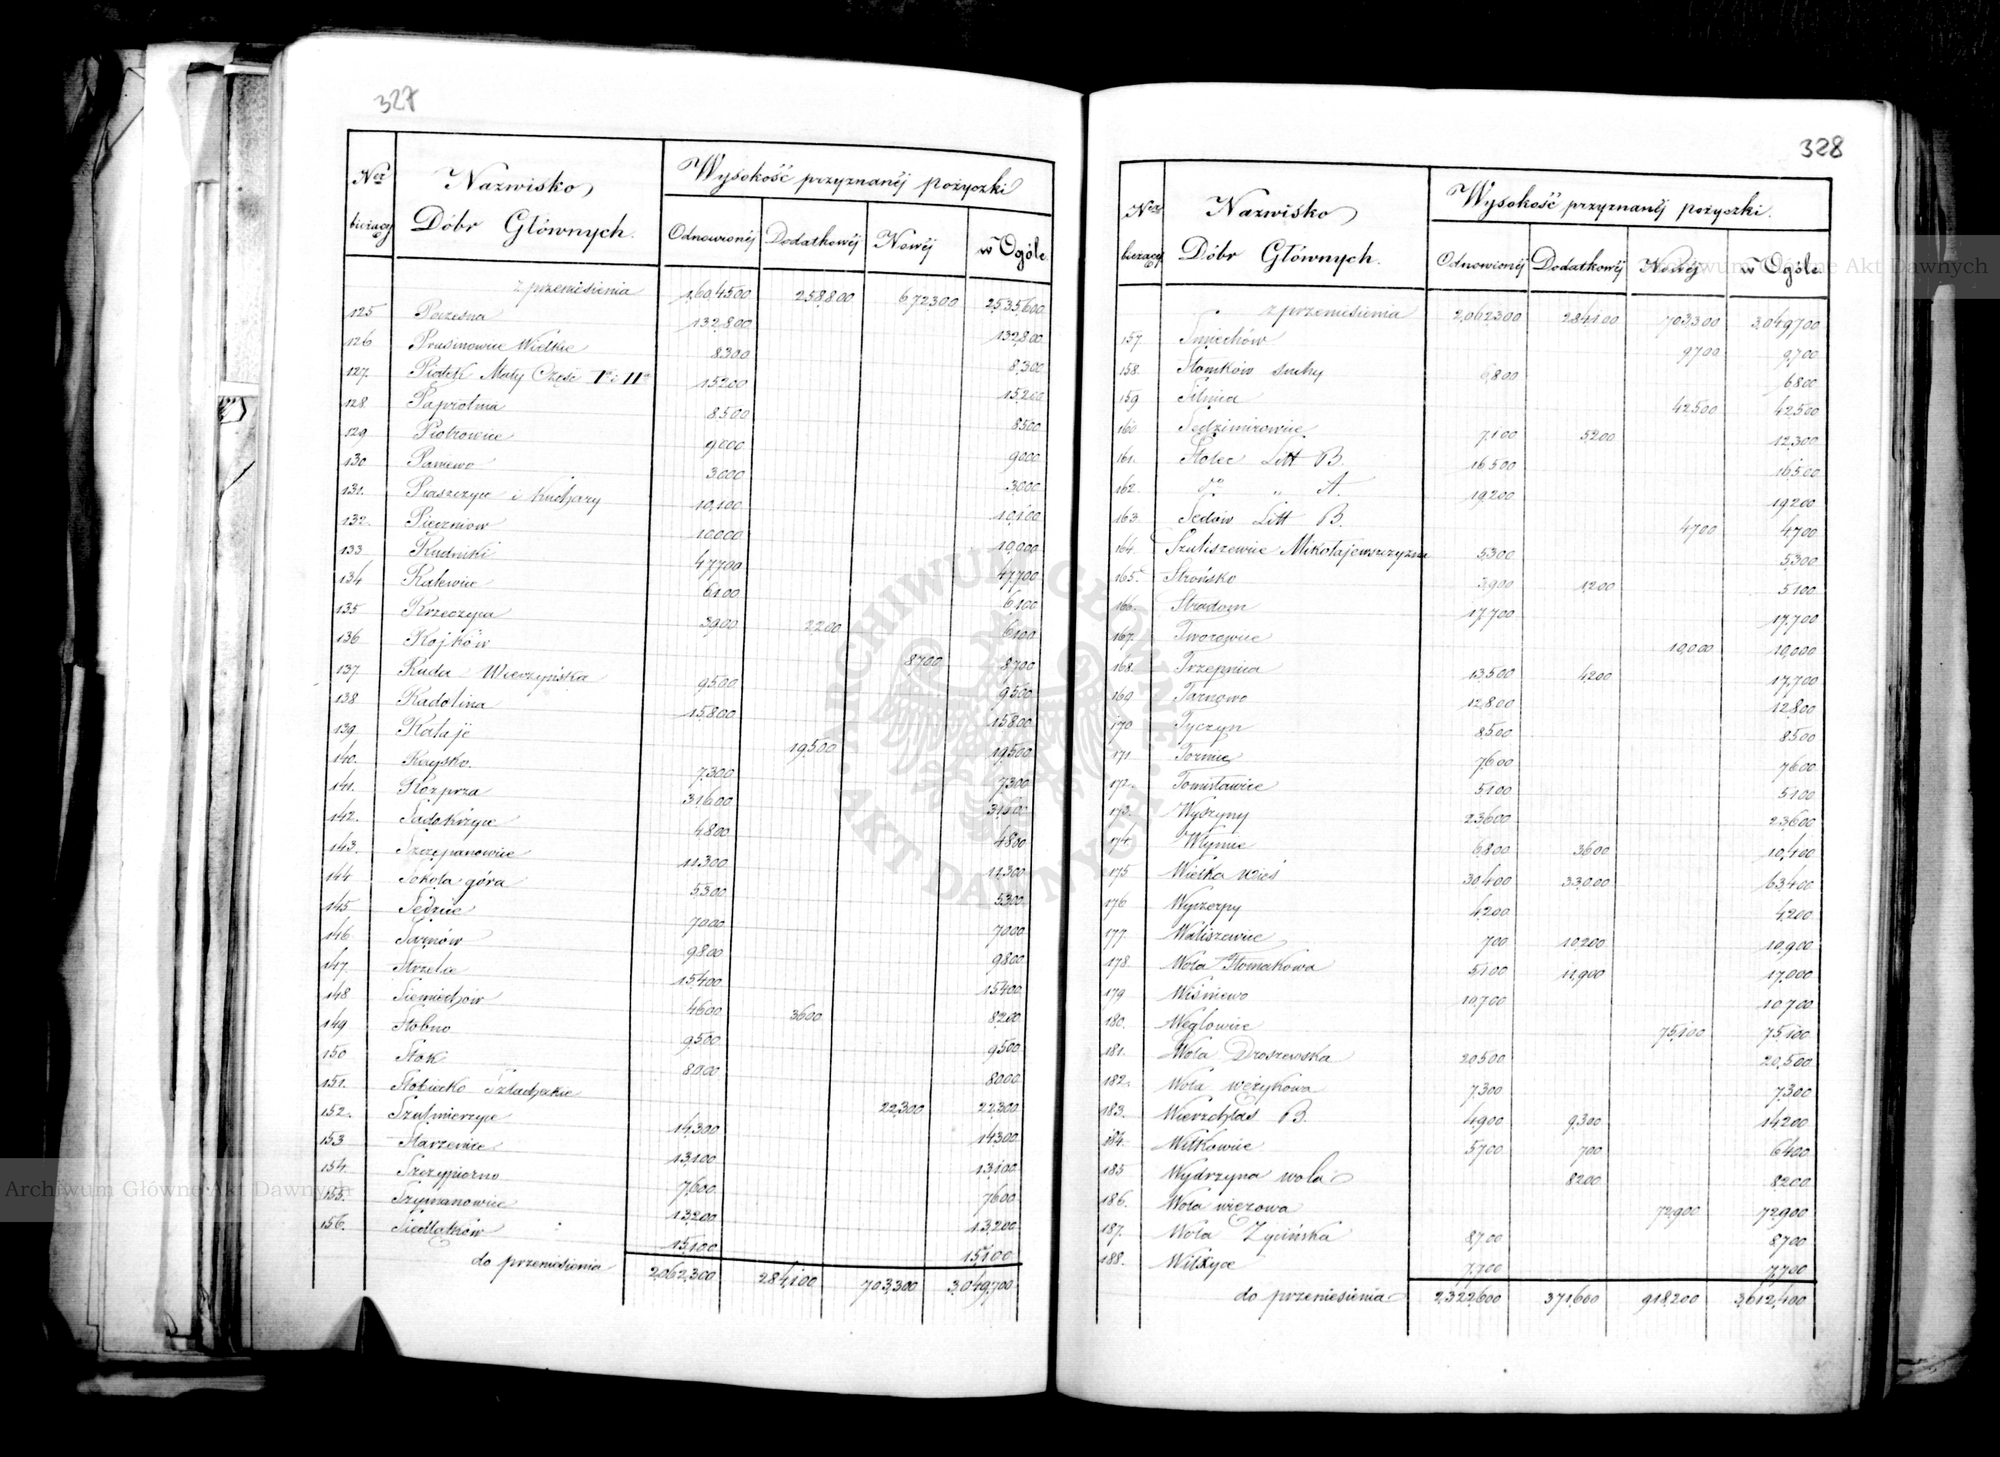 327
Ner bieżący Nazwisko Dóbr Głównych. Wysokość przyznanéj pożyczki
Odnowionéj Dodatkowéj Nowéj w Ogóle
z przeniesienia 1,604500 258,800 672300 2,535,600
125 Poczesna 132,800 132,800
126 Prusinowice Wielkie 8300 8,300
127. Piątek Mały Część Ia i IIa 15200 15,200
128 Paprotnia 8500 8500
129 Piotrowice 9000 9000
130 Paniewo 3000 3000
131. Piaszczyce i Kuchary 10,100 10,100
132. Pieczniew 10000 10,000
133 Rudniki 47700 47,700
134 Ralewice 6100 6100
135 Krzeczyca 3900 2200 6100
136 Rojków 8700 8700
137 Ruda Wieczyńska 9500 9500
138 Radolina 15800 15800
139. Rataje 19500 19500
140. Rzejsko 7,300 7300
141. Rozprza 31600 31600
142. Sadokrzyce 4800 4800
143. Szczepanowice 11300 11,300
144 Sokola góra 5300 5300
145. Sędzice 7000 7000
146 Sarnów 9800 9800
147. Strzelce 15400 15400
148 Siemiechów 4600 3600 8200
149 Stobno 9500 9500
150 Stok 8000 8000
151. Stobiecko Szlacheckie 22300 22300
152. Szałmierzyce 14300 14300
153 Starzenice 13100 13,100
154. Szczypiorno 7,600 7600
155. Szymanowice 13200 13,200
156. Siedlątków 15,100 15,100
do przeniesienia 2,062,300 284,100 703,300 3,049,700
328
Ner bieżący Nazwisko Dóbr Głównych. Wysokość przyznanéj pożyczki.
Odnowionéj Dodatkowéj Nowéj w Ogóle
z przeniesienia 2,062,300 284,100 703,300 3,049,700
157. Smiechów 9700 9,700
158. Słomków suchy 6,800 6800
159 Silnica 42500 42500
160 Sędzimirowice 7,100 5200 12,300
161. Stolec Litt B. 16500 16500
162. do „ A. 19200 19200
163. Sędów Litt B. 4700 4700
164. Szaliszewice Mikołajewszczyzna 5300 5,300
165. Strońsko 3,900 1,200 5100
166. Stradom 17,700 17,700
167. Tworowice 10,000 10,000
168. Trzepnica 13,500 4,200 17,700
169 Tarnowo 12,800 12,800
170 Tyczyn 8500 8500
171 Tornice 7,600 7600
172. Tomisławice 5100 5100
173. Wyszyny 23,600 23,600
174 Włynice 6,800 3600 10,400
175 Wielka wieś 30,400 33,000 63,400
176 Wyczerpy 4200 4,200
177. Waliszewice 700 10,200 10,900
178. Wola Pomakowa 5,100 11,900 17,000
179 Wiśniewo 10,700 10,700
180. Węglowice 75,100 75,100
181. Wola Droszewska 20,500 20,500
182. Wola wężykowa 7300 7300
183. Wierzchlas B. 4,900 9,300 14200
184. Witkowice 5700 700 6400
185 Wydrzyna wola 8200 8200
186. Wola wiązowa 72,900 72,900
187. Wola Życińska 8,700 8,700
188. Wilxyce 7,700 7,700
do przeniesienia 2,322,600 371,600 918,200 3,612,400
Archiwum Główne Akt Dawnych
Archiwum Główne Akt Dawnych
ARCHIWUM GŁÓWNE · AKT DAWNYCH ·